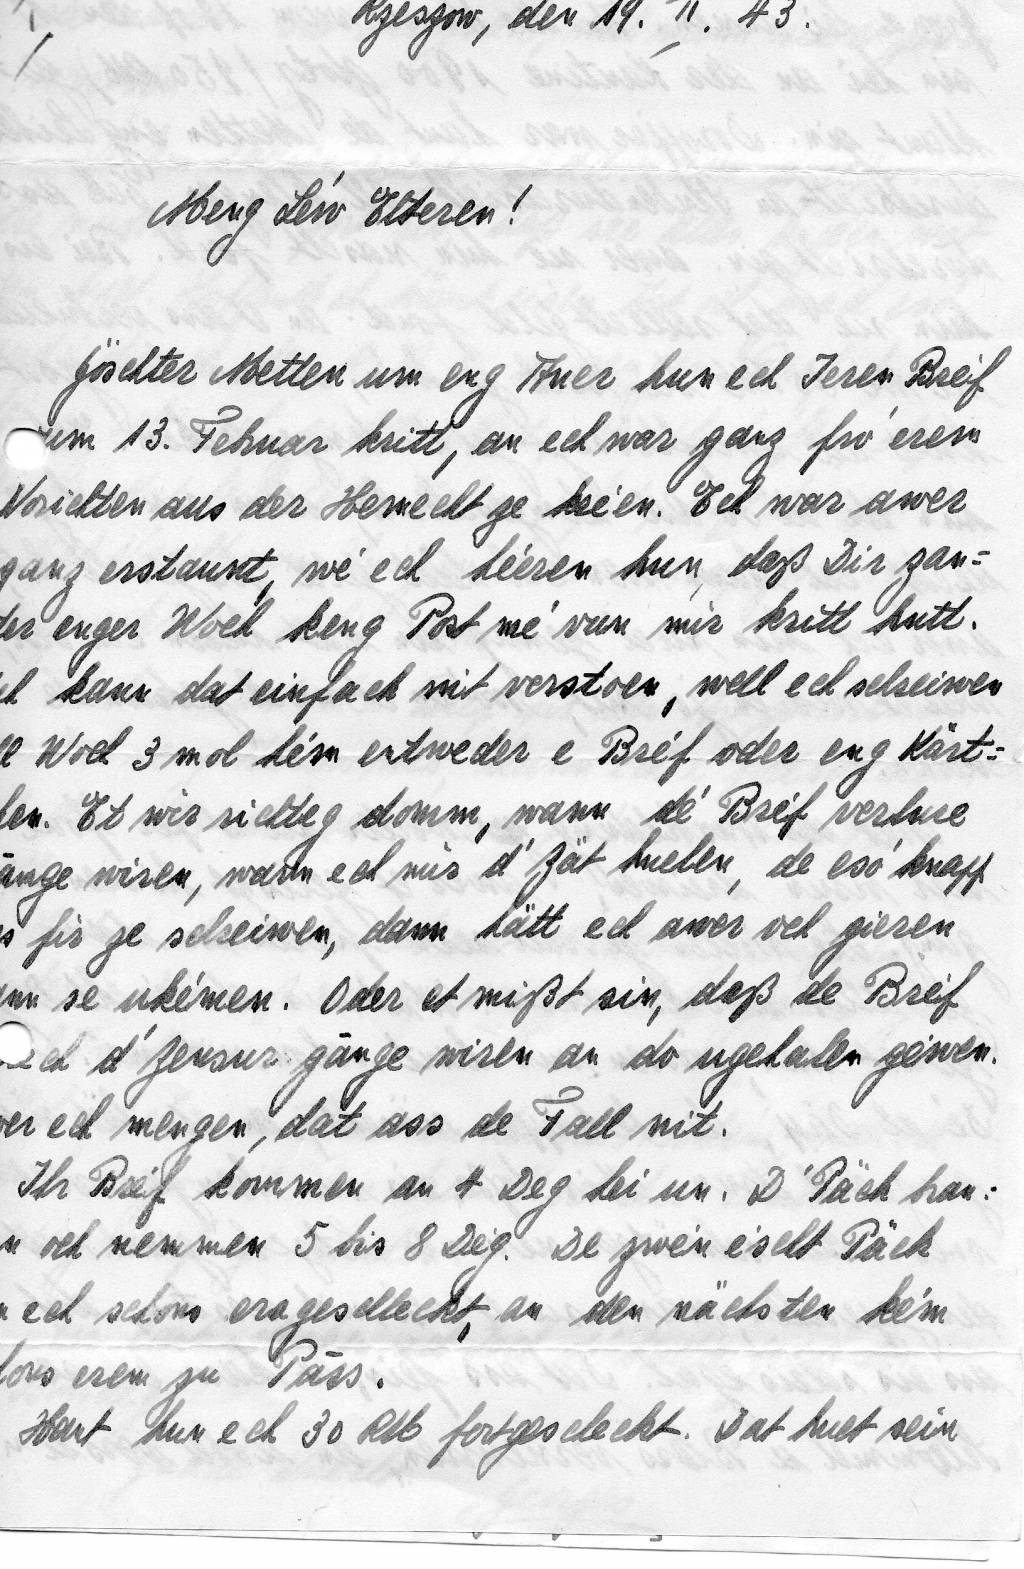 Rzeszow, den 19. II. 43.
Meng Léiv Elteren!
Göschter Metten um eng Auer hun ech Ieren Bréif
vum 13. Februar kritt, an ech war ganz fró erem
Norichten aus der Hemecht ze kréien. Ech war awer
ganz erstaunt, wé ech héieren hun, daß Dir zan=
ter enger Woch keng Post mé vun mir kritt hutt.
kann dat einfach nit verstoen, well ech schreiwen
all Woch 3 mol hém entweder e Bréf oder eng Kärt=
chen. Et wir richteg domm, wann dé Bréif verluere
gänge wiren, wann ech mir d' Zät huelen, de esó knapp
as fir ze schreiwen, dann hätt ech awer och gieren
wann se ukémen. Oder et mißt sin, daß de Bréif
duerch d' Zensur gänge wiren an do ugehalen géiwen.
Awer ech mengen, dat ass de Fall nit.
Ihr Bréif kommen an 4 Deg hei un. D' Päck brau=
en och nemmen 5 bis 8 Dég. De zwén éischt Päck
hun ech schons erageschleckt, an den nächsten kém
schons erem zu Pass.
Haut hun ech 30 RM fortgescheckt. Dat huet sein